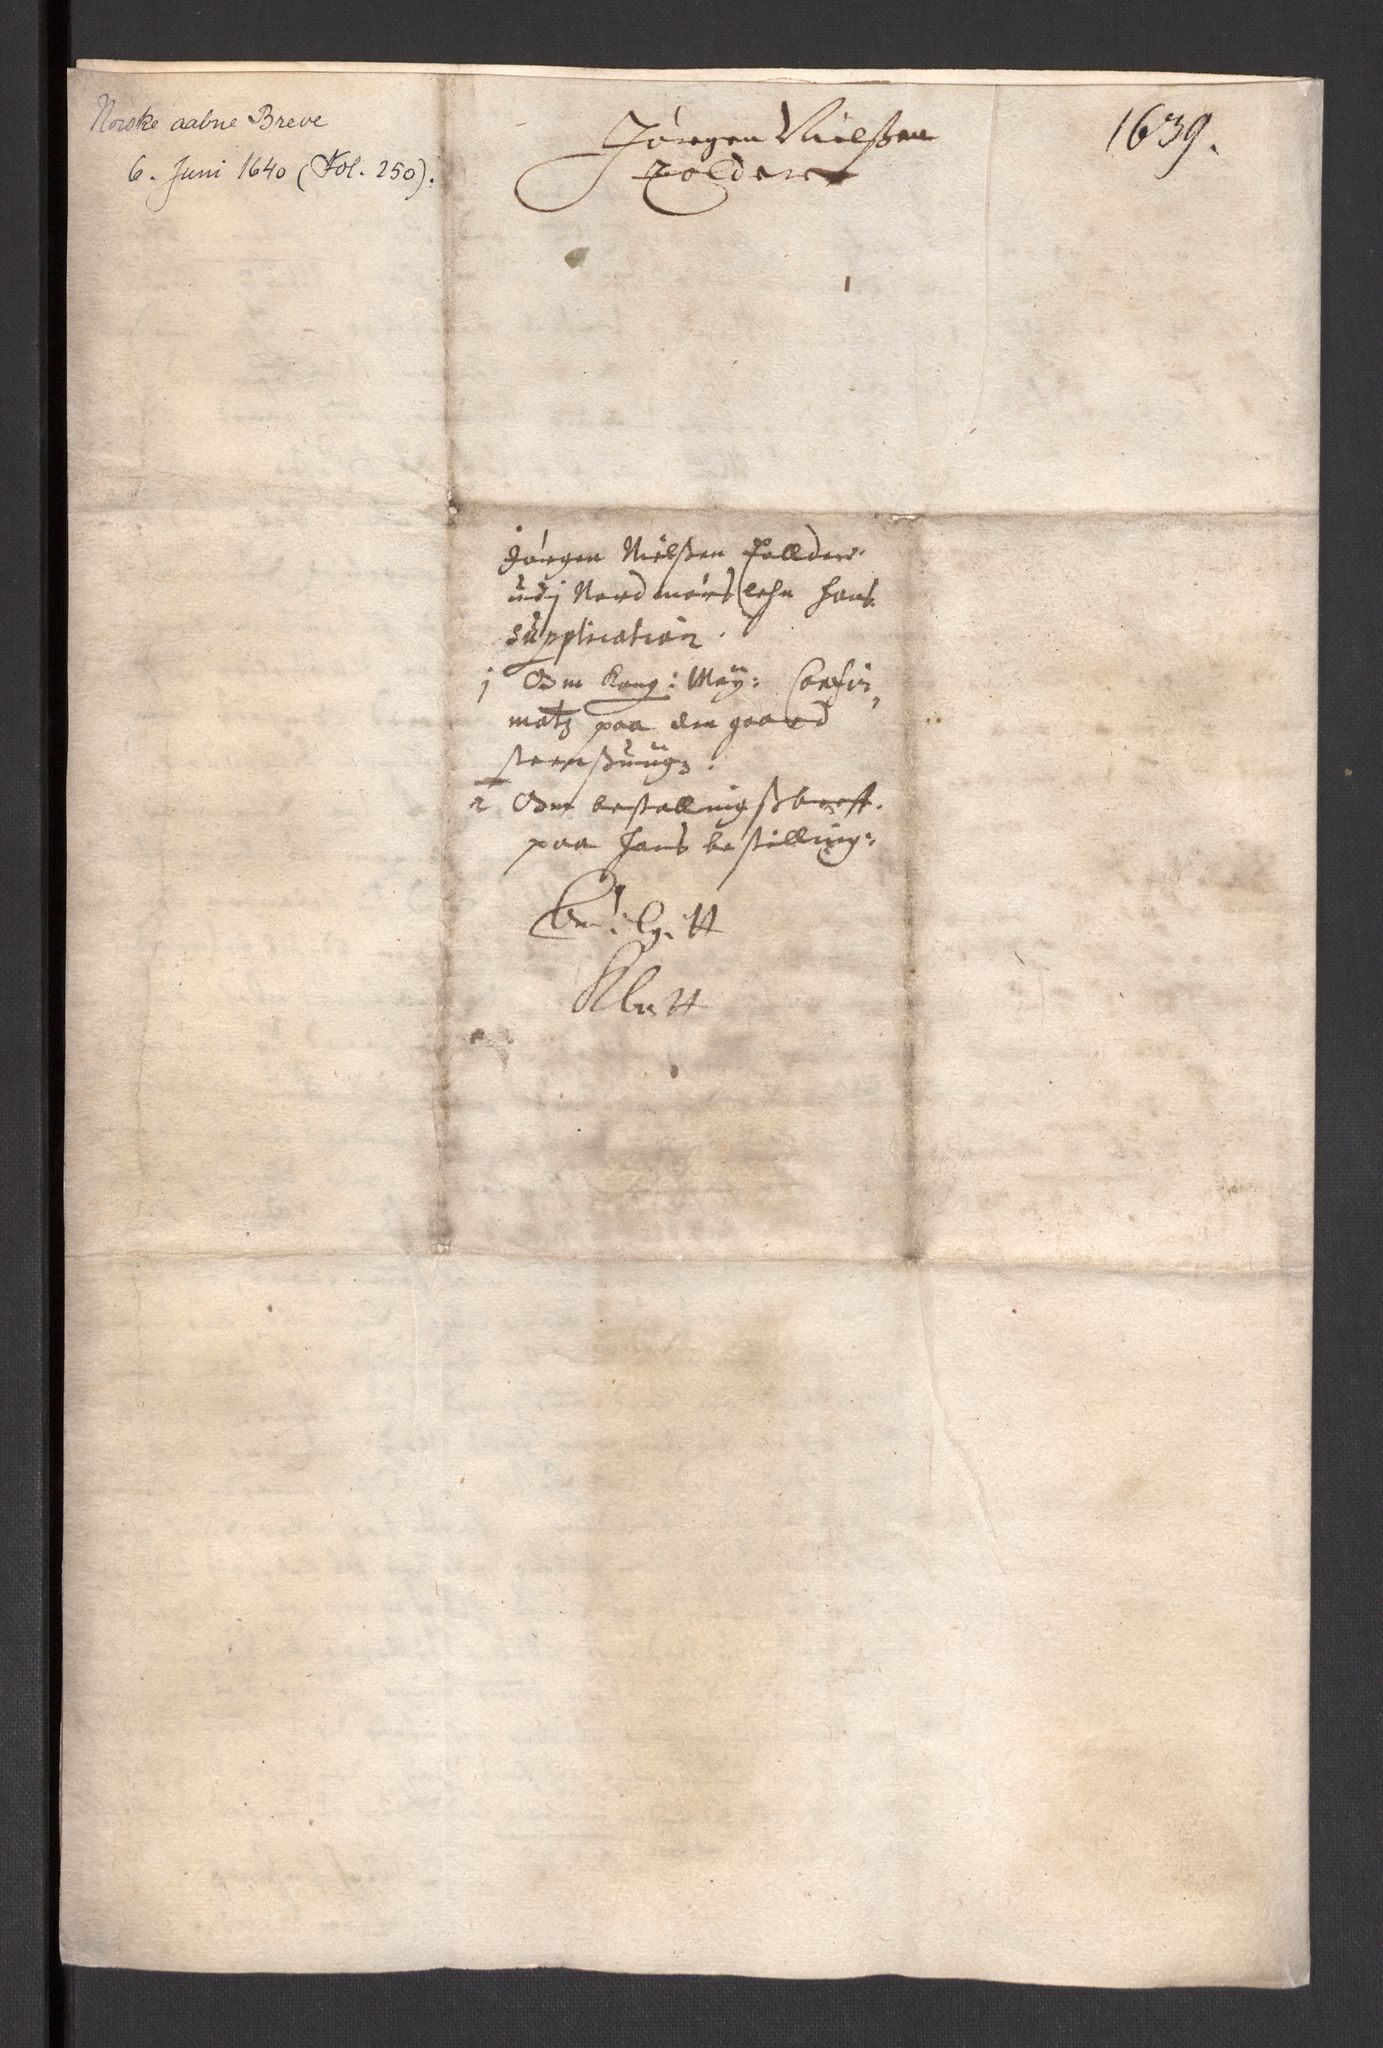 Norske aabne Breve
6. Juni 1640 (Fol. 250).
Jørgen Nielßen
Tolder
1639.
Jørgen Nielßen Tollder
udj Nordmørs lehn hans
Supplication.
j Om Kong: May: Confir,
matz paa den gaard
2 Om bestallingsßbreff
paa hans bestilling: